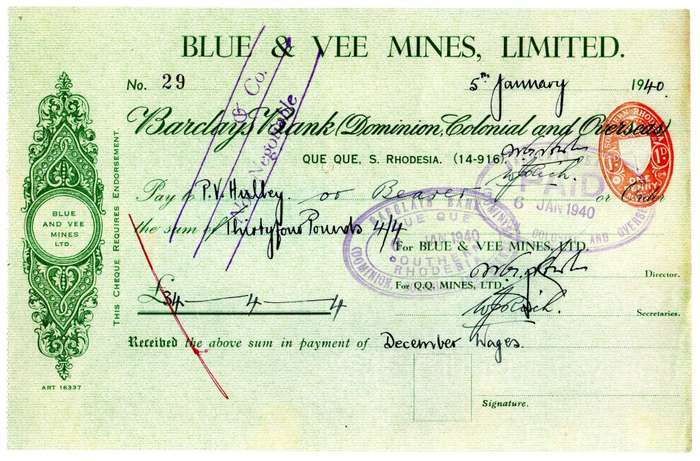 BLUE & VEE MINES, LIMITED.
No. 29 5th January 1940.
& Co.
Not Negotiable
Barclays Bank (Dominion, Colonial and Overseas)
QUE QUE, S. RHODESIA. (14-916)
Pay to P.V. Hulley. or Bearer or Order
the sum of Thirtyfour Pounds 4/4
For BLUE & VEE MINES, LTD.
Director.
For Q.Q. MINES, LTD.
Secretaries.
£34 — 4 — 4
Received the above sum in payment of December Wages.
Signature.
THIS CHEQUE REQUIRES ENDORSEMENT
BLUE
AND VEE
MINES
LTD.
ART 16337
PAID
6 JAN 1940
COLONIAL AND OVERSEAS
BARCLAYS BANK
QUE QUE
JAN 1940
SOUTHERN
RHODESIA
(DOMINION
SOUTHERN RHODESIA
1D 1D
ONE
PENNY